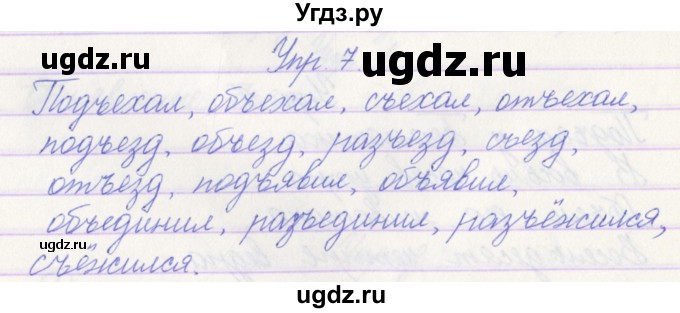 Угдз.ру
ugdz.ru
Упр 7.
ugdz.ru
ugdz.ru
Подъехал, объехал, съехал, отъехал,
подъезд, объезд, разъезд, съезд,
отъезд, подъявил, объявил,
объединил, разъединил, разъёжился,
съёжился.
ugdz.ru
ugdz.ru
ugdz.ru
ugdz.ru